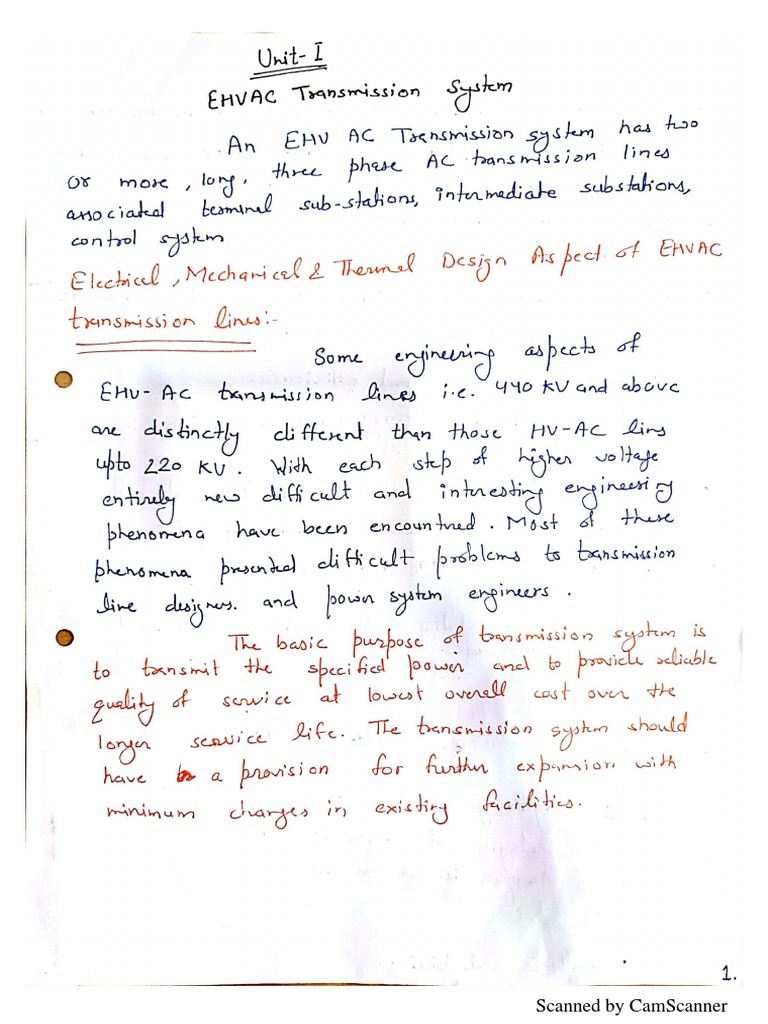 Unit-I
EHVAC Transmission System
An EHV AC Transmission system has two
or more, long, three phase AC transmission lines
associated terminal sub-stations, intermediate substations,
control system
Electrical, Mechanical & Thermal Design Aspect of EHVAC
transmission lines:-
Some engineering aspects of
EHV-AC transmission lines i.e. 440 KV and above
are distinctly different than those HV-AC lins
upto 220 KV. With each step of higher voltage
entirely new difficult and interesting engineering
phenomena have been encountred. Most of these
phenomena presented difficult problems to transmission
line designers. and power system engineers.
The basic purpose of transmission system is
to transmit the specified power and to provide reliable
quality of service at lowest overall cost over the
longer service life. The transmission system should
have a provision for further expansion with
minimum charges in existing facilities.
1.
Scanned by CamScanner